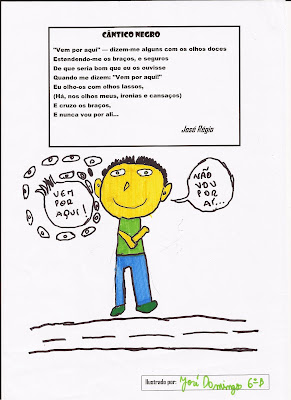 CÂNTICO NEGRO
"Vem por aqui" — dizem-me alguns com os olhos doces
Estendendo-me os braços, e seguros
De que seria bom que eu os ouvisse
Quando me dizem: "Vem por aqui!"
Eu olho-os com olhos lassos,
(Há, nos olhos meus, ironias e cansaços)
E cruzo os braços,
E nunca vou por ali...
José Régio
VEM
POR
AQUI!
NÃO
VOU
POR
AÍ...
Ilustrado por: José Domingos 6ºB